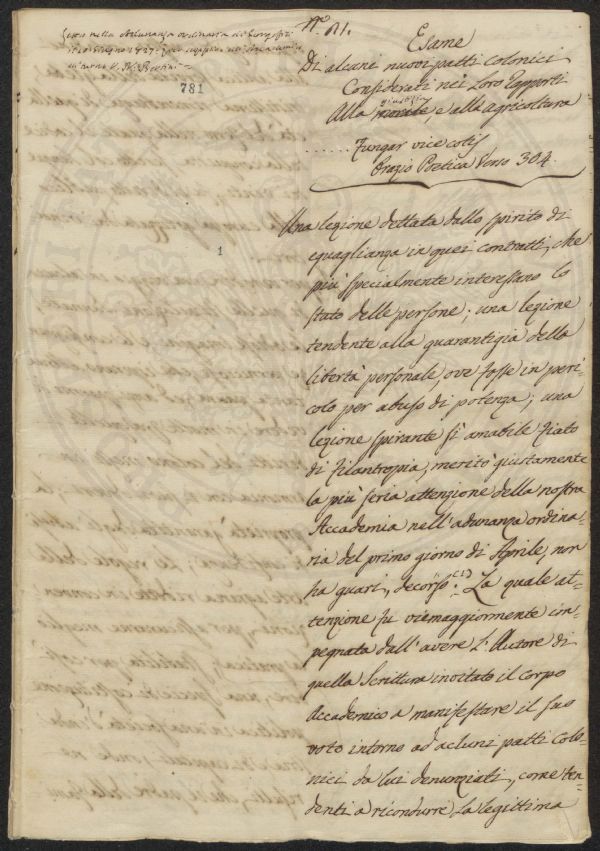 Letto nella Adunanza ordinaria de' Georgofili
il 10 Giugno 1827
781
N.º 61.
Esame
Di alcuni nuovi patti colonici
Considerati nei Loro Rapporti
Alla morale giustizia, e alla agricoltura
...... Fungar vice cotis
Orazio Poetica Verso 304.
1
Una lezione dettata dallo spirito di
eguaglianza in quei contratti, che
più specialmente interessano lo
stato delle persone; una lezione
tendente alla guarantigia della
libertà personale, ove fosse in peri-
colo per abuso di potenza; una
lezione spirante sì amabile fiato
di filantropia, meritò giustamente
la più seria attenzione della nostra
Accademia nell'adunanza ordina-
ria del primo giorno di Aprile, non
ha guari, decorso. (1) La quale at-
tenzione fu viemaggiormente im-
pegnata dall'avere L'Autore di
quella Scrittura invitato il corpo
Accademico a manifestare il suo
voto intorno ad acluni patti Colo-
nici da lui denunziati, come ten-
denti a ricondurre La legittima